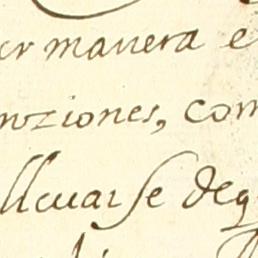 er manera e
noziones, com
lleuarse deq